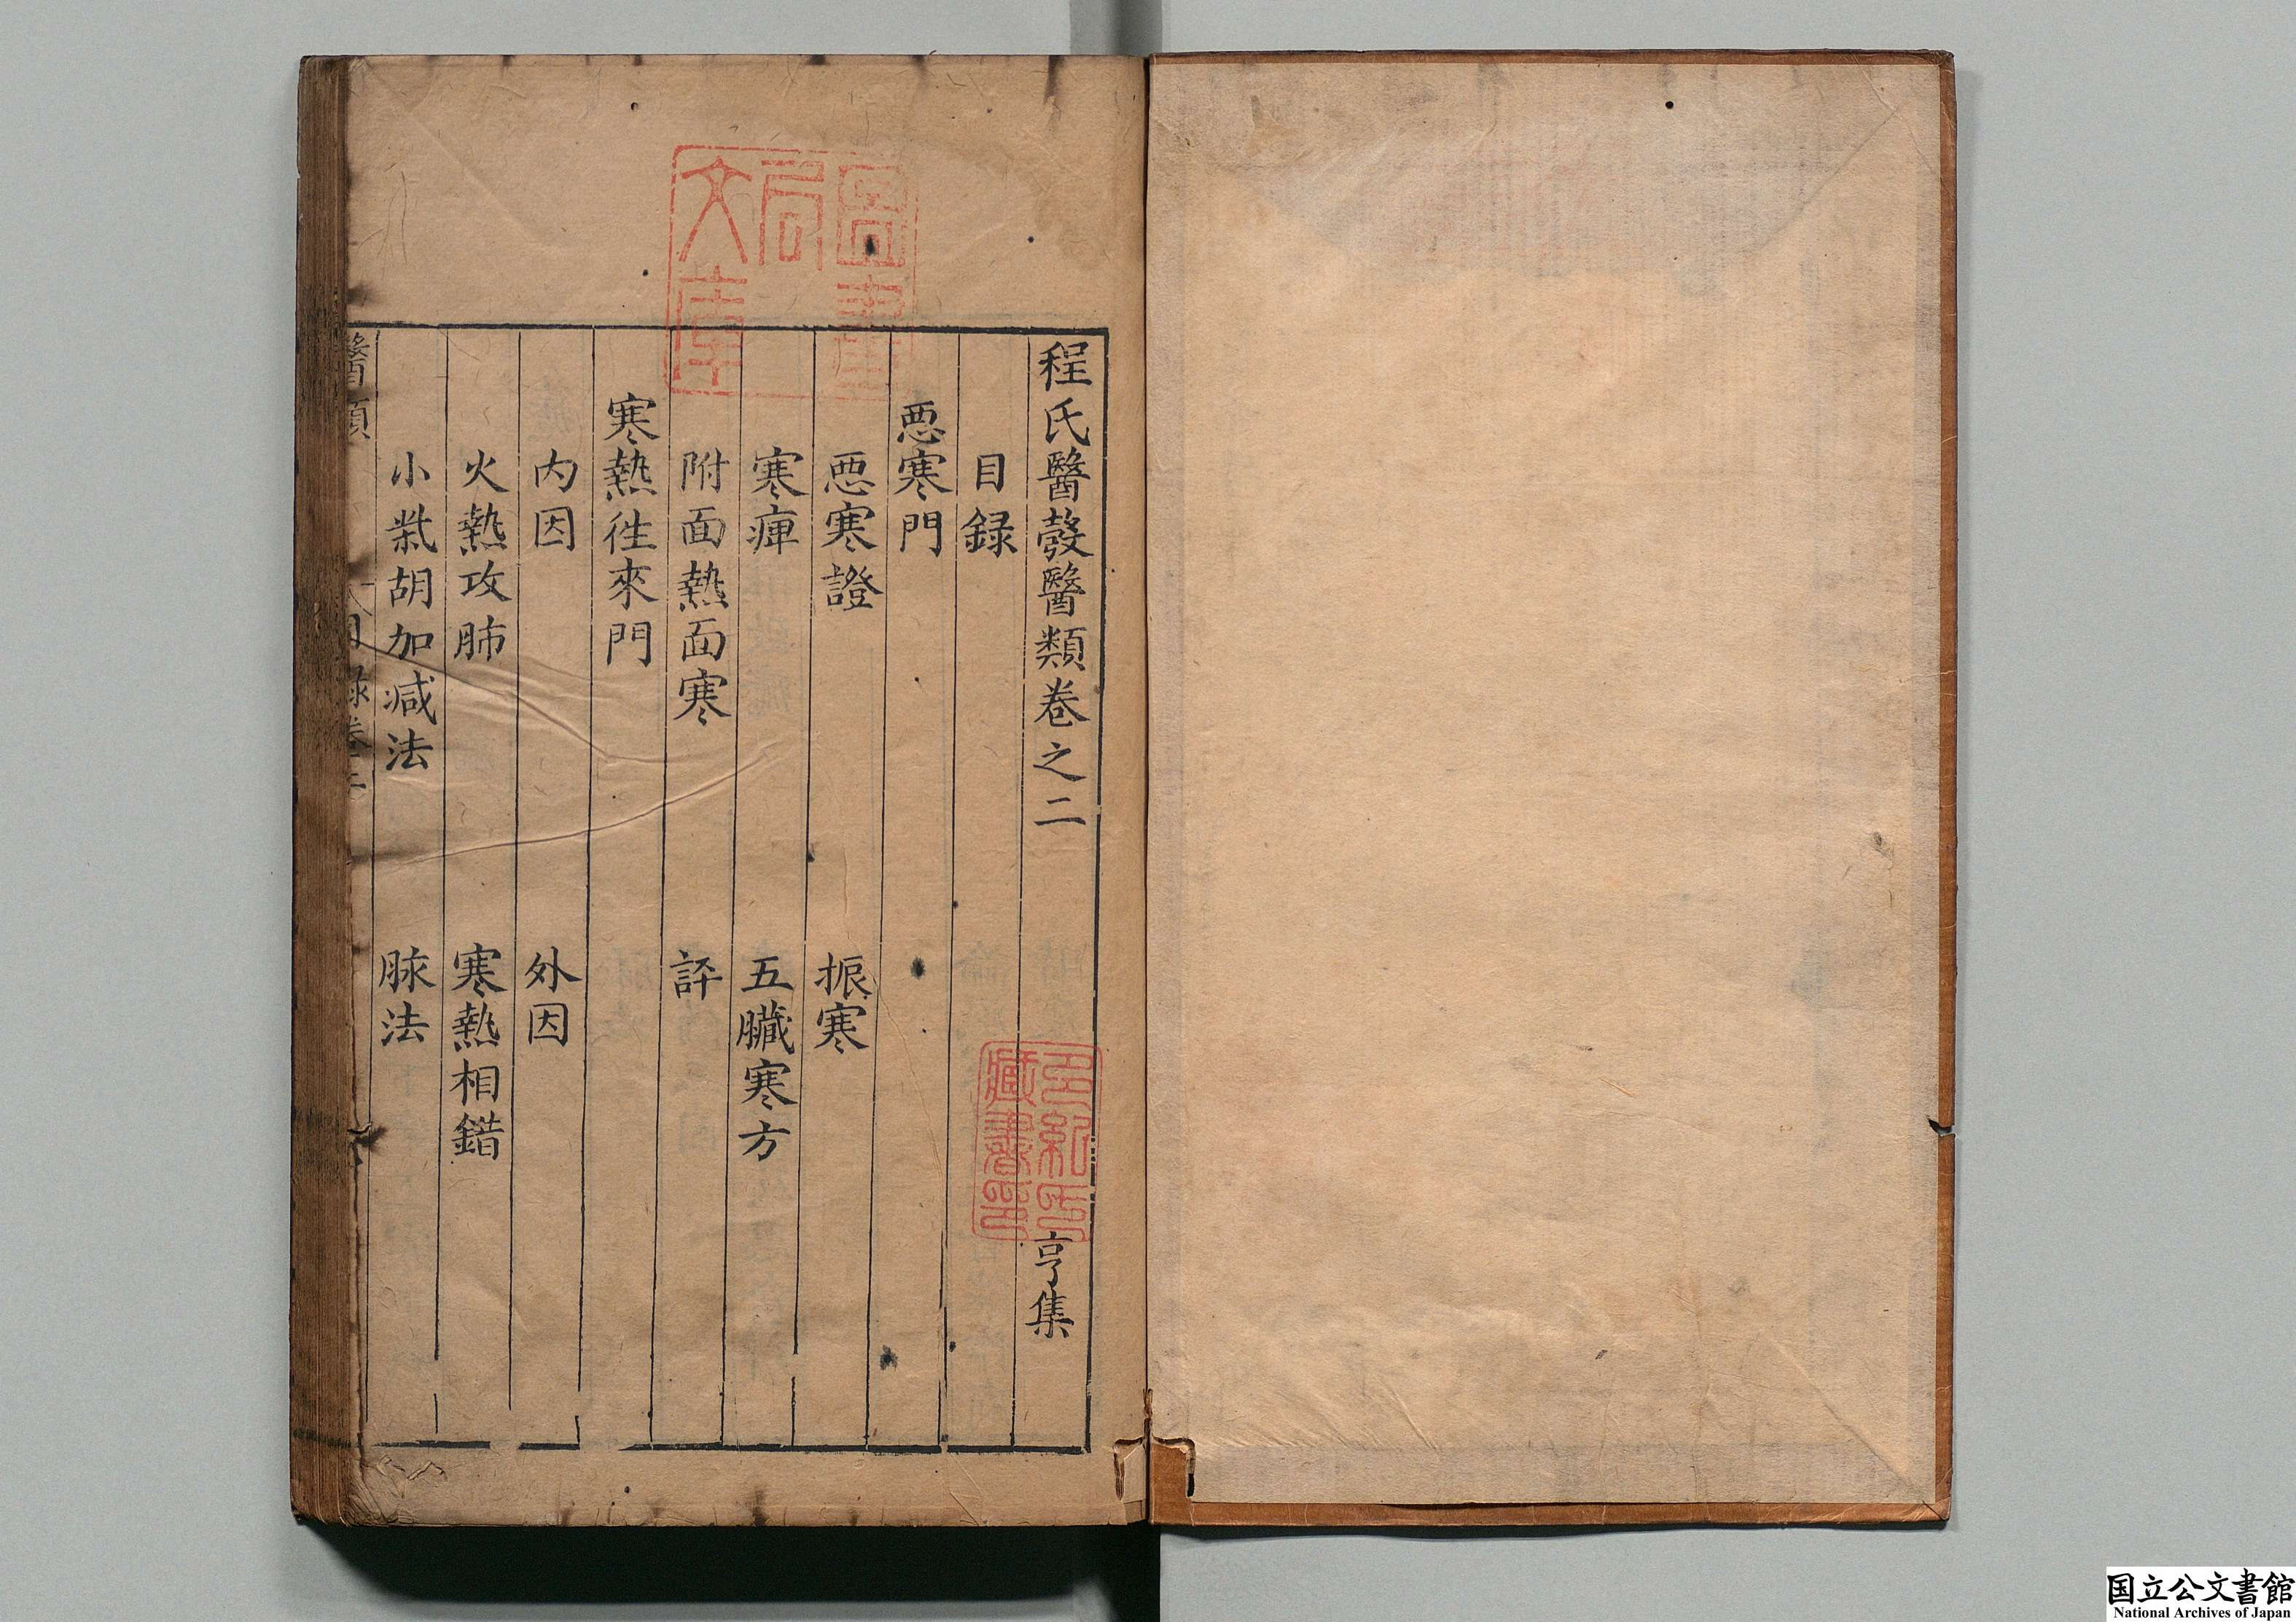 程氏醫彀醫類卷之二 亨集
目録
悪寒門
悪寒證 振寒
寒痺 五臟寒方
附面熱面寒 評
寒熱徃來門
内因 外因
火熱攻肺 寒熱相錯
小柴胡加减法 脉法
醫類 目録卷
圖書局文庫
多紀氏藏書印
国立公文書館
National Archives of Japan